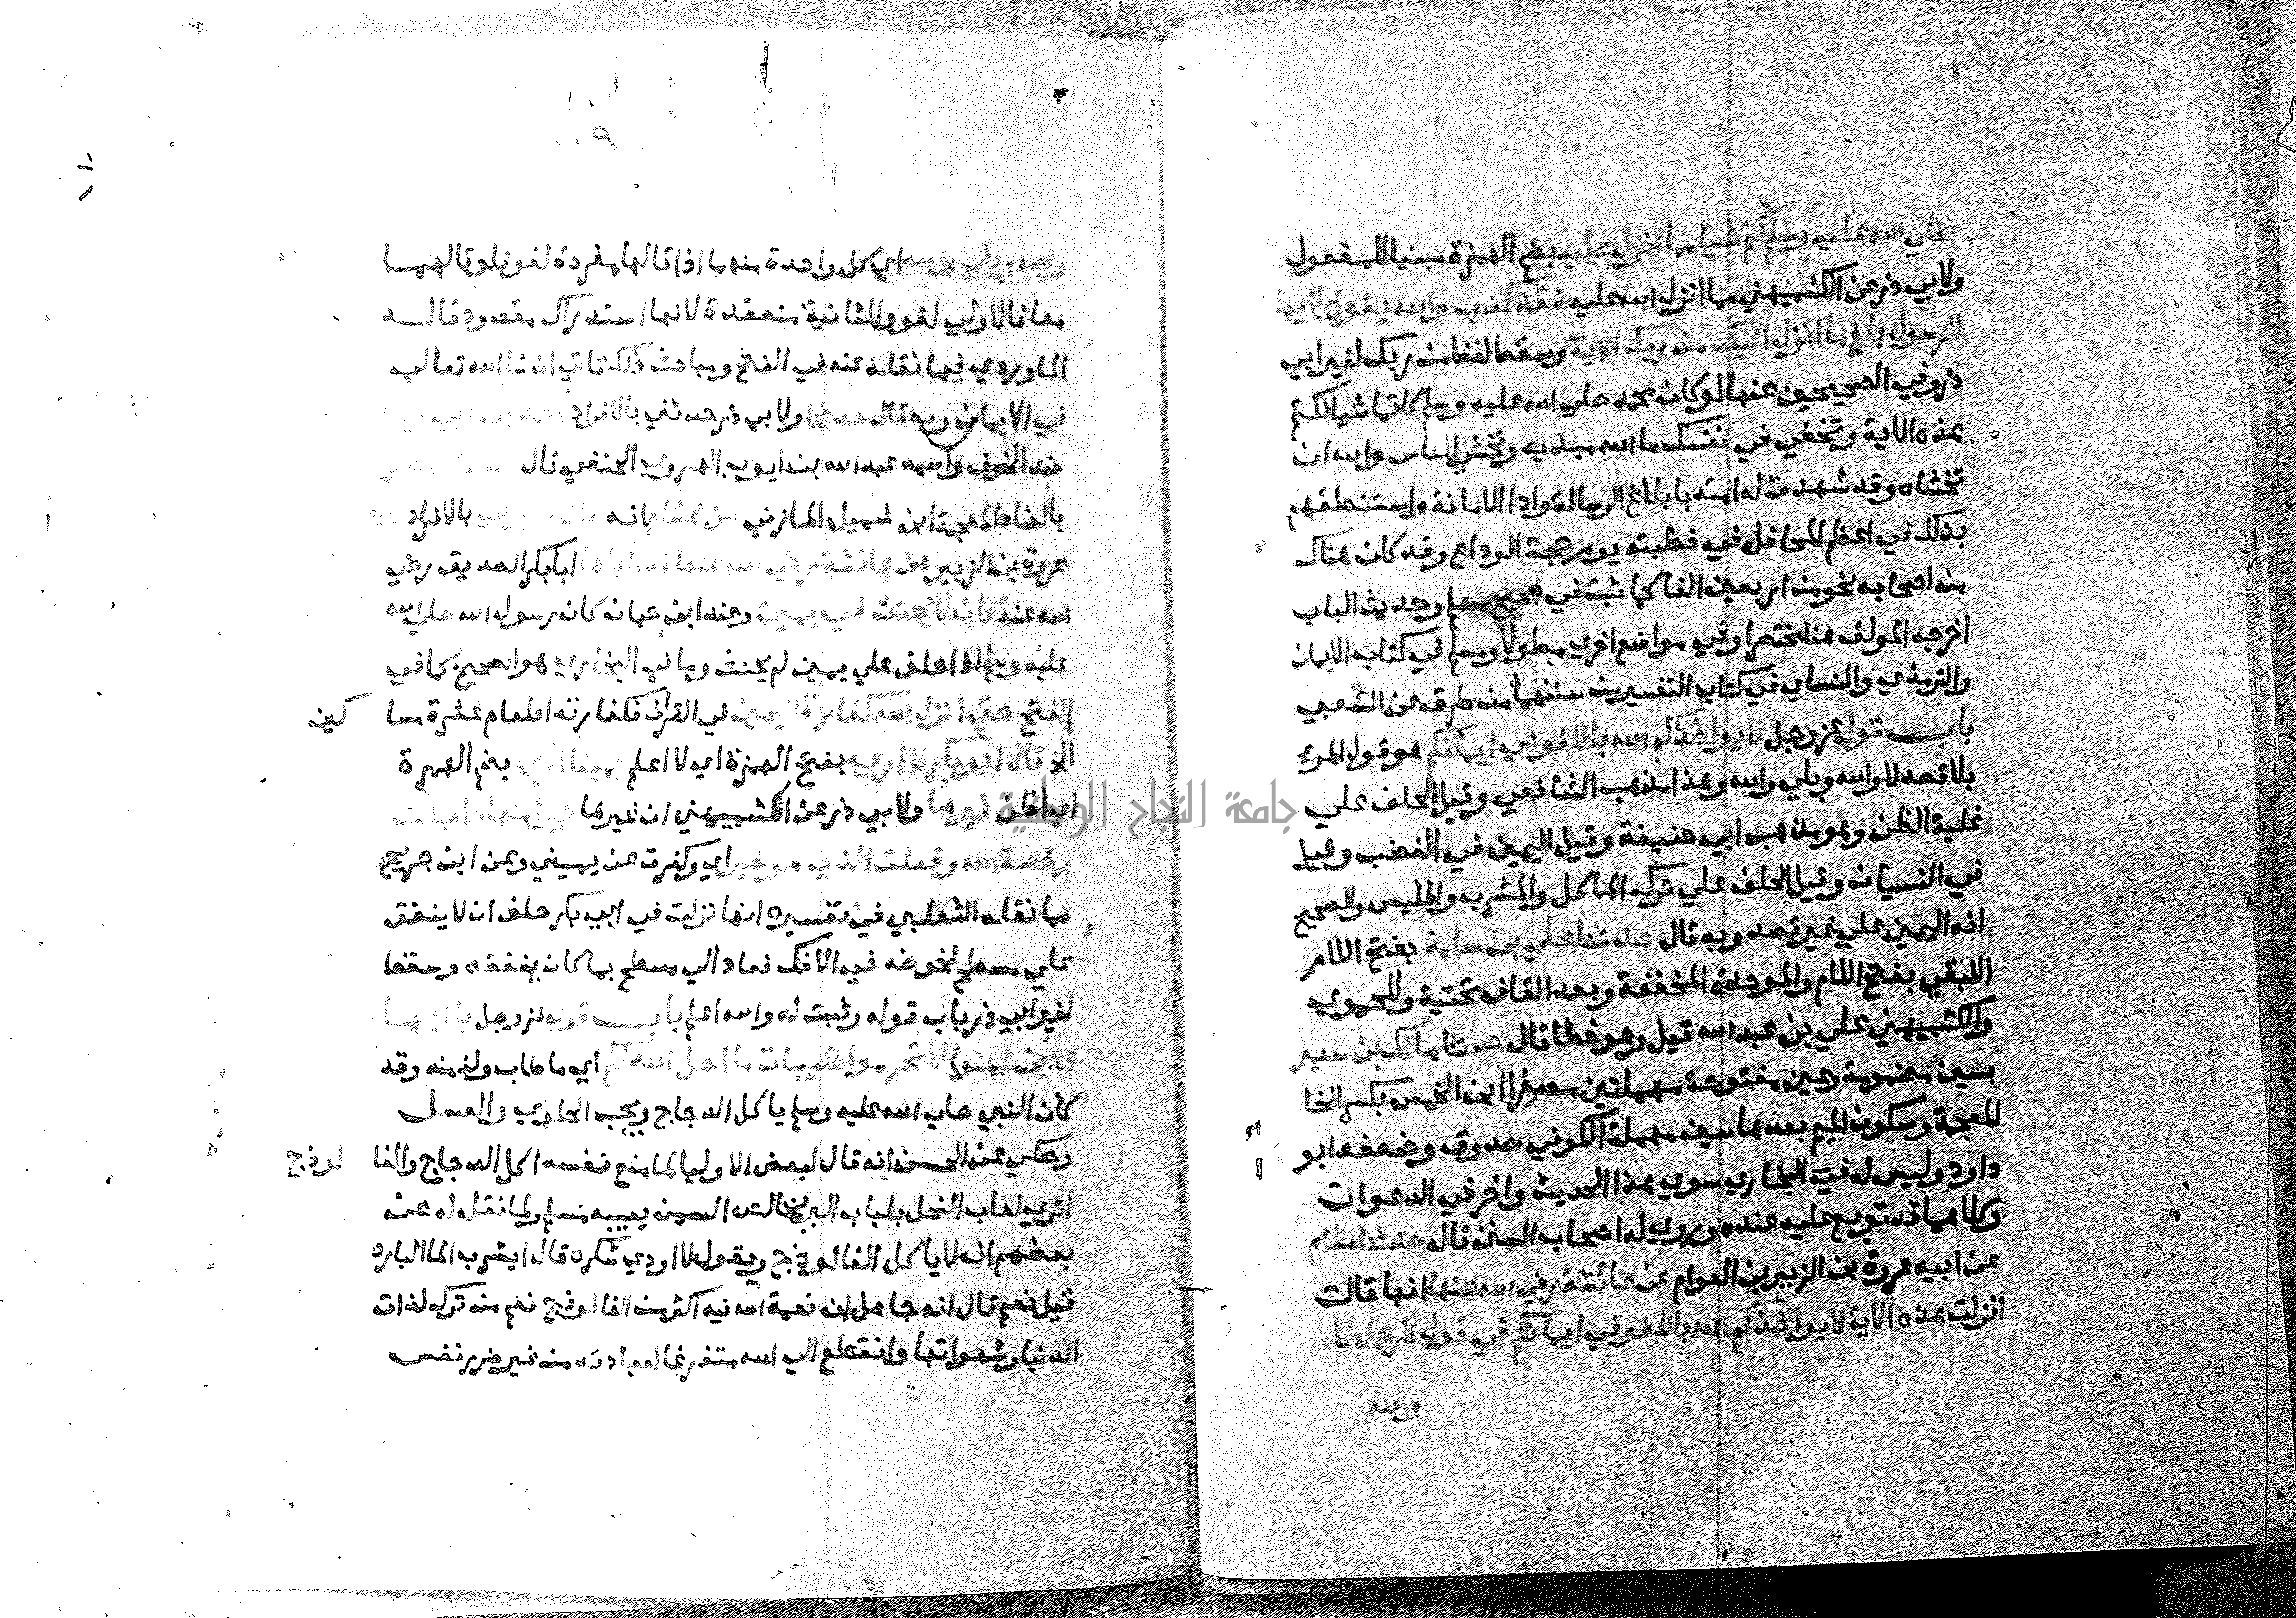 صلي الله عليه وسلم كتم شيا مما انزل عليه بضم الهمزة مبنيا للمفعول
ولابي ذر عن الكشميهني مما انزل الله عليه فقد كذب والله يقول يا ايها
الرسول بلغ ما انزل اليك من ربك الاية وسقط لفظ من ربك لغير ابي
ذر وفي الصحيحين عنها لو كان محمد صلي الله عليه وسلم كاتما شيا لكتم
هذه الاية وتخفي في نفسك ما الله مبديه وتخشي الناس والله ان
تخشاه وقد شهدت له امته بابلاغ الرسالة وادا الامانة واستنطقهم
بذلك في اعظم المحافل في خطبته يوم حجة الوداع وقد كان هناك
من اصحابه نحو من اربعين الفا كما ثبت في صحيح مسلم وحديث الباب
اخرجه المولف هنا مختصرا وفي مواضع اخري مطولا ومسلم في كتاب الايمان
والترمذي والنساي في كتاب التفسير من سننهما من طرق عن الشعبي
باب قوله عز وجل لا يواخذكم الله باللغو في ايمانكم هو قول المرء
بلا قصد لا والله وبلي والله وهذا مذهب الشافعي وقيل الحلف علي
غلبة الظن وهو مذهب ابي حنيفة وقيل اليمين في الغضب وقيل
في النسيان وقيل الحلف علي ترك الماكل والمشرب والملبس والصحيح
انه اليمين علي غير قصد وبه قال حدثنا علي بن سلمة بفتح اللام
اللبقي بفتح اللام والموحدة المخففة وبعد القاف تحتية وللحموي
والكشميهني علي بن عبد الله قيل وهو خطا قال حدثنا مالك بن سعير
بسين مضمومة وعين مفتوحة مهملتين مصغرا ابن الخمس بكسر الخا
المعجمة وسكون الميم بعدها سين مهملة الكوفي صدوق وضعفه ابو
داود وليس له في البخاري سوي هذا الحديث واخر في الدعوات
وكلاهما قد توبع عليه عنده وروي له اصحاب السنن قال حدثنا هشام
عن ابيه عروة بن الزبير بن العوام عن عائشة رضي الله عنها انها قالت
انزلت هذه الاية لا يواخذكم الله باللغو في ايمانكم في قول الرجل لا
والله
والله وبلي والله اي كل واحدة منهما اذا قالها مفردة لغو فلو قالهما
معا فالاولي لغو والثانية منعقدة لانها استدراك مقصود قاله
الماوردي فيما نقله عنه في الفتح ومباحث ذلك تاتي ان شا الله تعالي
في الايمان وبه قال حدثنا ولابي ذر حدثني بالافراد
ضد الخوف واسمه عبد الله بن ايوب الهروي الحنفي قال
بالضاد المعجمة ابن شميل المازني عن هشام انه بالافراد
عروة بن الزبير عن عائشة رضي الله عنها ان اباها ابا بكر الصديق رضي
الله عنه كان لا يحنث في يمين وعند ابن حبان كان رسول الله صلي الله
عليه وسلم اذا حلف علي يمين لم يحنث وما في البخاري هو الصحيح كما في
الفتح حتي انزل الله كفارة اليمين في القران فكفارته اطعام عشرة مسا كين
الخ قال ابو بكر لا اري بفتح الهمزة اي لا اعلم يمينا اري بضم الهمزة
اي اظن غيرها ولابي ذر عن الكشميهني ان غيرها خيرا منها الا قبلت
رخصة الله وفعلت الذي هو خير اي وكفرت عن يميني وعن ابن جريج
مما نقله الثعلبي في تفسيره انها نزلت في ابي بكر حلف ان لا ينفق
علي مسطح لخوضه في الافك فعاد الي مسطح بما كان ينفقه وسقط
لغير ابي ذر باب قوله وثبت له والله اعلم باب قوله عز وجل يا ايها
الذين امنوا لا تحرموا طيبات ما احل الله لكم اي ما طاب ولذ منه وقد
كان النبي صلي الله عليه وسلم ياكل الدجاج ويحب الحلوي والعسل
وحكي عن الحسن انه قال لبعض الاوليا لما منع نفسه اكل الدجاج والفا لوذج
اتري لعاب النحل بلباب البر بخالص السمن يعيبه مسلم ولما نقل له عن
بعضهم انه لا ياكل الفالوذج ويقول لا اودي شكره قال ايشرب الما البارد
قيل نعم قال انه جاهل ان نعمة الله فيه اكثر من الفالوذج نعم من ترك لذات
الدنيا وشهواتها وانقطع الي الله متفرغا لعبادته من غير ضرر نفس
جامعة النجاح الوطنية